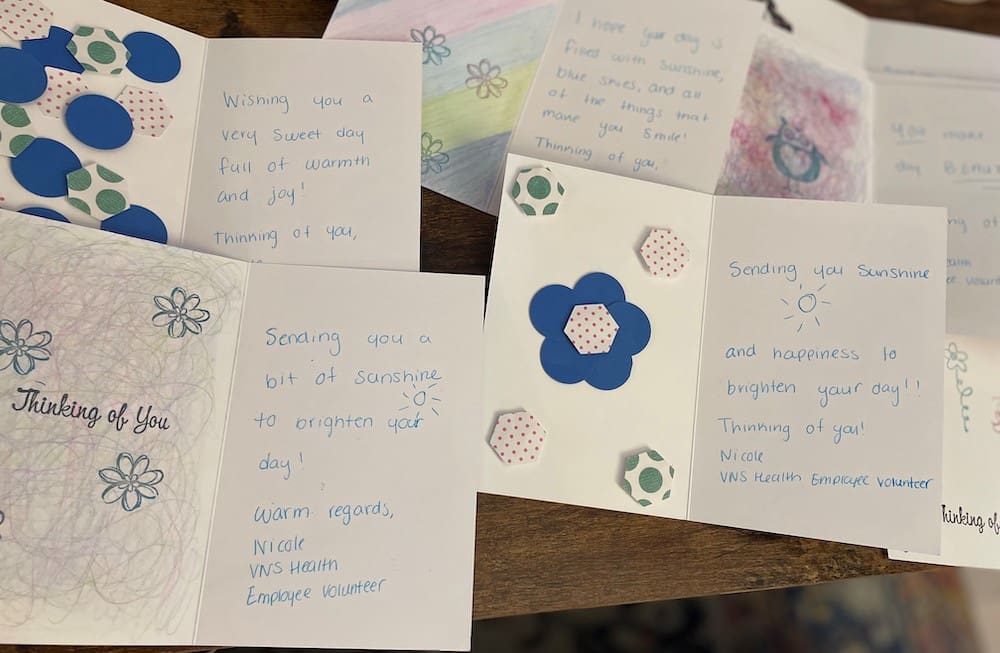 Wishing you a
very sweet day
full of warmth
and joy!
Thinking of you,
I hope your day is
filled with sunshine,
blue skies, and all
of the things that
make you smile!
Thinking of you,
you
day
Thinking of You
Sending you a
bit of sunshine
to brighten your
day!
Warm regards,
Nicole
VNS Health
Employee Volunteer
Sending you sunshine
and happiness to
brighten your day!!
Thinking of you!
Nicole
VNS Health Employee Volunteer